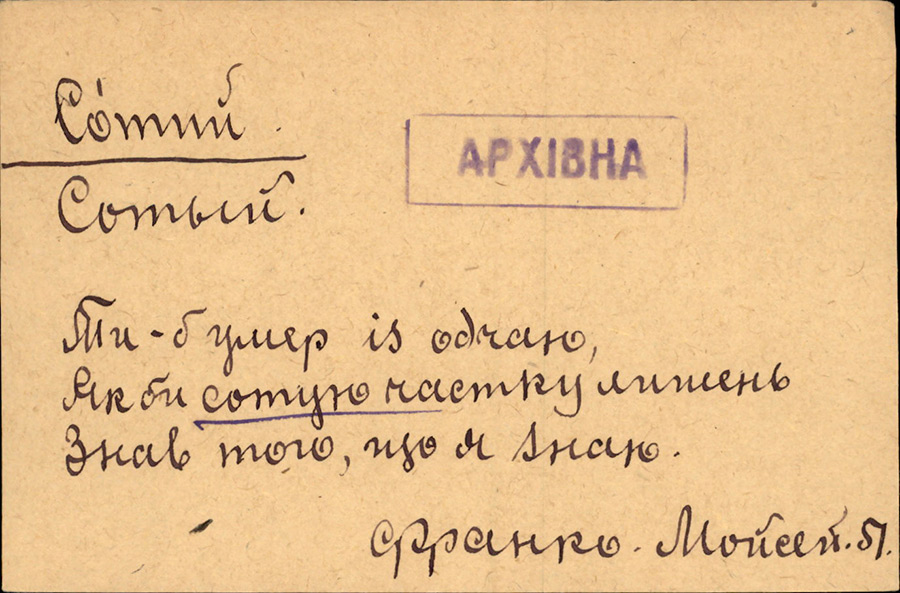 Со́тий.
АРХІВНА
Сотый.
Ти-б умер із одчаю,
Як би сотую частку лишень
Знав того, що я знаю.
Франко. Мойсей. 51.